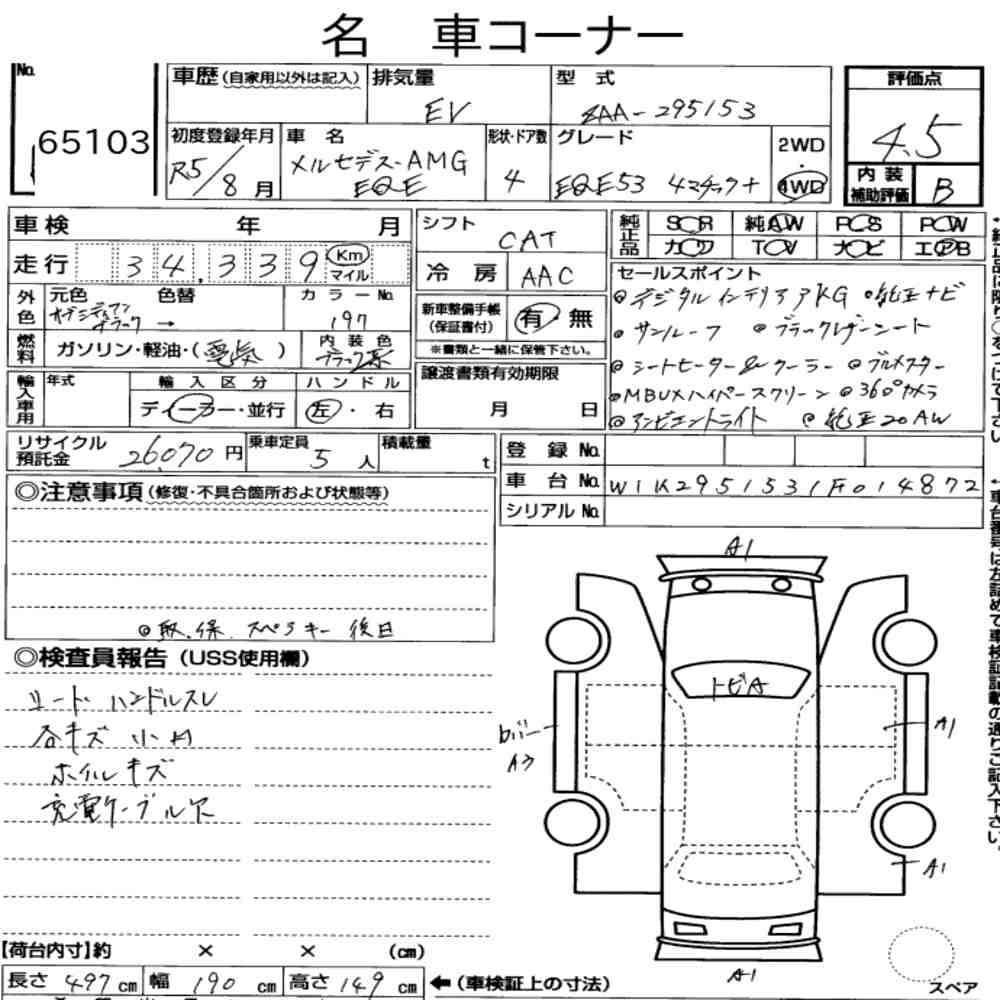 名 車コーナー
No.
65103
車歴(自家用以外は記入)
排気量
EV
型 式
ZAA-295153
評価点
4.5
初度登録年月
R5/8月
車 名
メルセデス-AMG
EQE
形状・ドア数
4
グレード
EQE53 4マチック+
2WD
・
4WD
内 装
補助評価
B
車検 年 月
シフト
CAT
純正品
SR 純AW PS PW
カワ TV ナビ エアB
走行 34,339 Km
マイル
冷 房
AAC
セールスポイント
◎デジタルインテリアPKG ◎純正ナビ
◎サンルーフ ◎ブラックレザーシート
◎シートヒーター&クーラー ◎ブルメスター
◎MBUXハイパースクリーン ◎360°カメラ
◎アンビエントライト ◎純正20AW
外色
元色 色替 カラーNo.
オブシディアン
ブラック → 197
新車整備手帳
(保証書付)
有 無
※書類と一緒に保管下さい。
燃料
ガソリン・軽油・(電気)
内 装 色
ブラック系
譲渡書類有効期限
月 日
輸入車用
年式
輸 入 区 分
ディーラー・並行
ハ ン ド ル
左・右
リサイクル
預託金
26,070円
乗車定員
5人
積載量
t
登 録 No.
車 台 No. W1K2951531F014872
シリアル No.
◎注意事項(修復・不具合箇所および状態等)
◎取.保.スペアキー 後日
◎検査員報告(USS使用欄)
シード ハンドルスレ
各キズ 小凹
ホイルキズ
充電ケーブル欠
A1
トビA
A1
A3
A1
A1
【荷台内寸】約 × × (cm)
長さ 497cm 幅 190cm 高さ 149cm
←(車検証上の寸法)
スペア